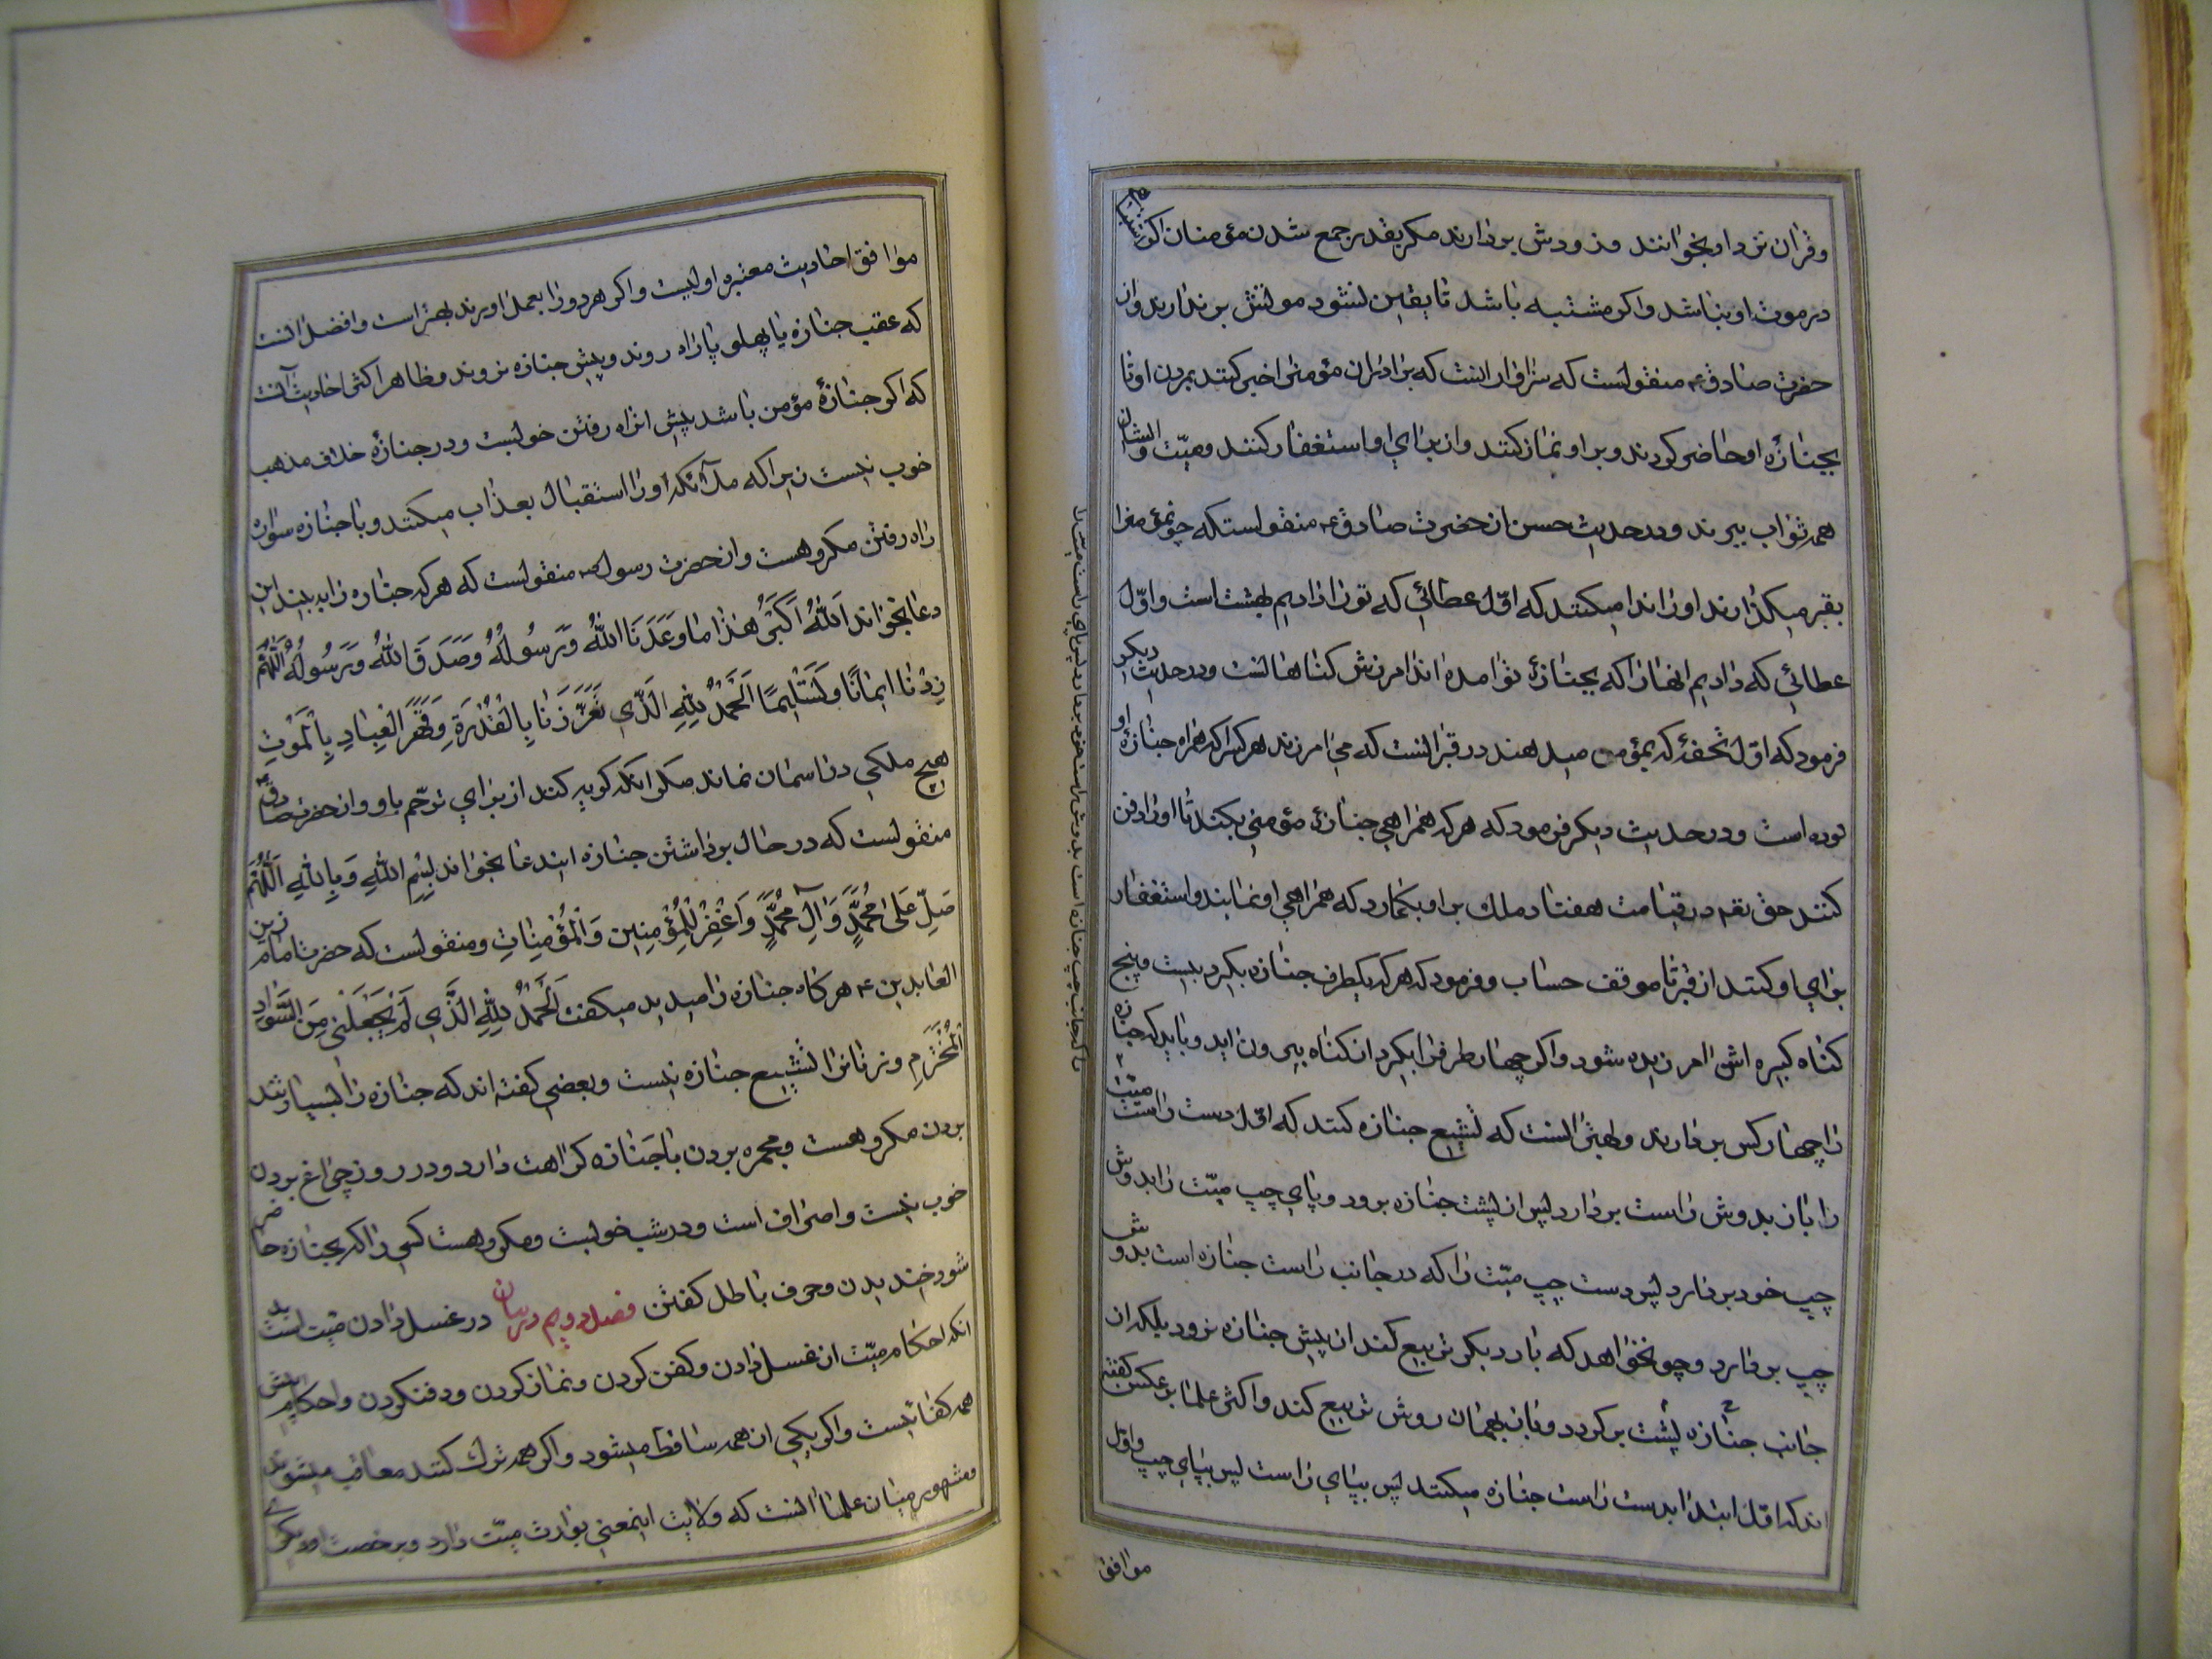 وقران نزد او بخوانند و زودش بردارند مکر بقدر جمع شدن مؤمنان اکر
در موت او نباشد و اکر مشتبه باشد تا یقین نشود موتش بر ندارند و از
حضرت صادق ع منقولست که سزاوار انست که برادران مؤمنرا خبر کنند بمردن او تا
بجنازهٔ او حاضر کردند و بر او نماز کنند و از برای او استغفار کنند و میّت و ایشان
همه ثواب ببرند و در حدیث حسن از حضرت صادق ع منقولست که چو نمؤمنرا
بقبر میکذارند او را ندا میکنند که اوّل عطائی که تو را دادیم بهشت است و اوّل
عطائی که دادیم انها را که بجنازهٔ تو امده اند امرزش کناهانست و در حدیث دیکر
فرمود که اوّل تحفهٔ که بمؤمن میدهند در قبر انست که می امرزند هر کسرا که همراه جنازهٔ او
بوده است و در حدیث دیکر فرمود که هر که همراهی جنازهٔ مؤمنی بکند تا او را دفن
کنند حق تعم در قیامت هفتاد ملك بر او بکمارد که همراهی او نمایند و استغفار
برای او کنند از قبر تا موقف حساب و فرمود که هر که یکطرف جنازه بکیرد بیست و پنج
کناه کبیره اش امرزیده شود و اکر چهار طرفرا بکیرد از کناه بیرون اید و باید که جنازه
را چهار کس بردارند و بهتر انست که تشیع جنازه کنند که اوّل دست راست میّت
را بان بدوش راست بردارد پس از پشت جنازه برود و پای چپ میّت را بدوش
چپ خود بردارد پس دست چپ میّت را که در جانب راست جنازه است بدوش
چپ بردارد و چو نخواهد که بار دیکر تربیع کند از پیش جنازه نرود بلکه از
جانب جنازه پشت بر کردد و بان بهمان روش تربیع کند و اکثر علما بر عکس کفته
اند که اوّل ابتدا بدست راست جنازه میکنند پس بپای راست پس بپای چپ و اوّل
موافق
موافق احادیث معتبره اولیست و اکر هر دو را بعمل اورند بهتر است و افضل انست
که عقب جنازه یا پهلو پا راه روند و پیش جنازه نروند و ظاهر اکثر احادیث آنست
که اکر جنازهٔ مؤمن باشد پیش از راه رفتن خوبست و در جنازهٔ خلاف مذهب
خوب نیست زیرا که ملآئکه او را استقبال بعذاب میکنند و با جنازه سواره
راه رفتن مکروهست و از حضرت رسول ص منقولست که هر که جنازه را به بیند این
دعا بخواند اَللّٰهُ اَکْبَرُ هٰذا ما وَعَدَنَا اللّٰهُ وَرَسُولُهُ وَصَدَقَ اللّٰهُ وَرَسُولُهُ اَللّٰهُمَّ
زِدْنا ایمانًا وَتَسْلیمًا اَلْحَمْدُ لِلّٰهِ الَّذی تَعَزَّزَنا بِالْقُدْرَةِ وَقَهَرَ الْعِبادِ بِالْمَوْتِ
هیچ ملکی در اسمان نماند مکر انکه کریه کند از برای ترحّم باو و از حضرت صادق ع
منقولست که در حال برداشتن جنازه ایندعا بخواند بِسْمِ اللّٰهِ وَبِاللّٰهِ اَللّٰهُمَّ
صَلِّ عَلٰی مُحَمَّدٍ وَآلِ مُحَمَّدٍ وَاغْفِرْ لِلْمُؤْمِنینِ وَالْمُؤْمِناتِ و منقولست که حضرت امام زین
العابدین ع هر کاه جنازه را میدید میکفت اَلْحَمْدُ لِلّٰهِ الَّذی لَمْ یَجْعَلْنی مِنَ السَّوادِ
الْمُخْتَرَمِ و زنانرا تشییع جنازه نیست و بعضی کفته اند که جنازه را بسیار تند
بردن مکروهست و مجمره بردن با جنازه کراهت دارد و در روز چراغ بردن
خوب نیست و اصراف است و در شب خوبست و مکروهست کسی را که بجنازه حاضر
شود خندیدن و حرف باطل کفتن فصل دویم در بیان در غسل دادن میّت است بد
انکه احکام میّت از غسل دادن و کفن کردن و نماز کردن و دفنکردن و احکام
همه کفائیست و اکر یکی از همه ساقط میشود و اکر همه ترك کنند معاقب میشوند
و مشهور میان علما انست که ولایت اینمعنی بوارث میّت دارد و برخصت او دیکری